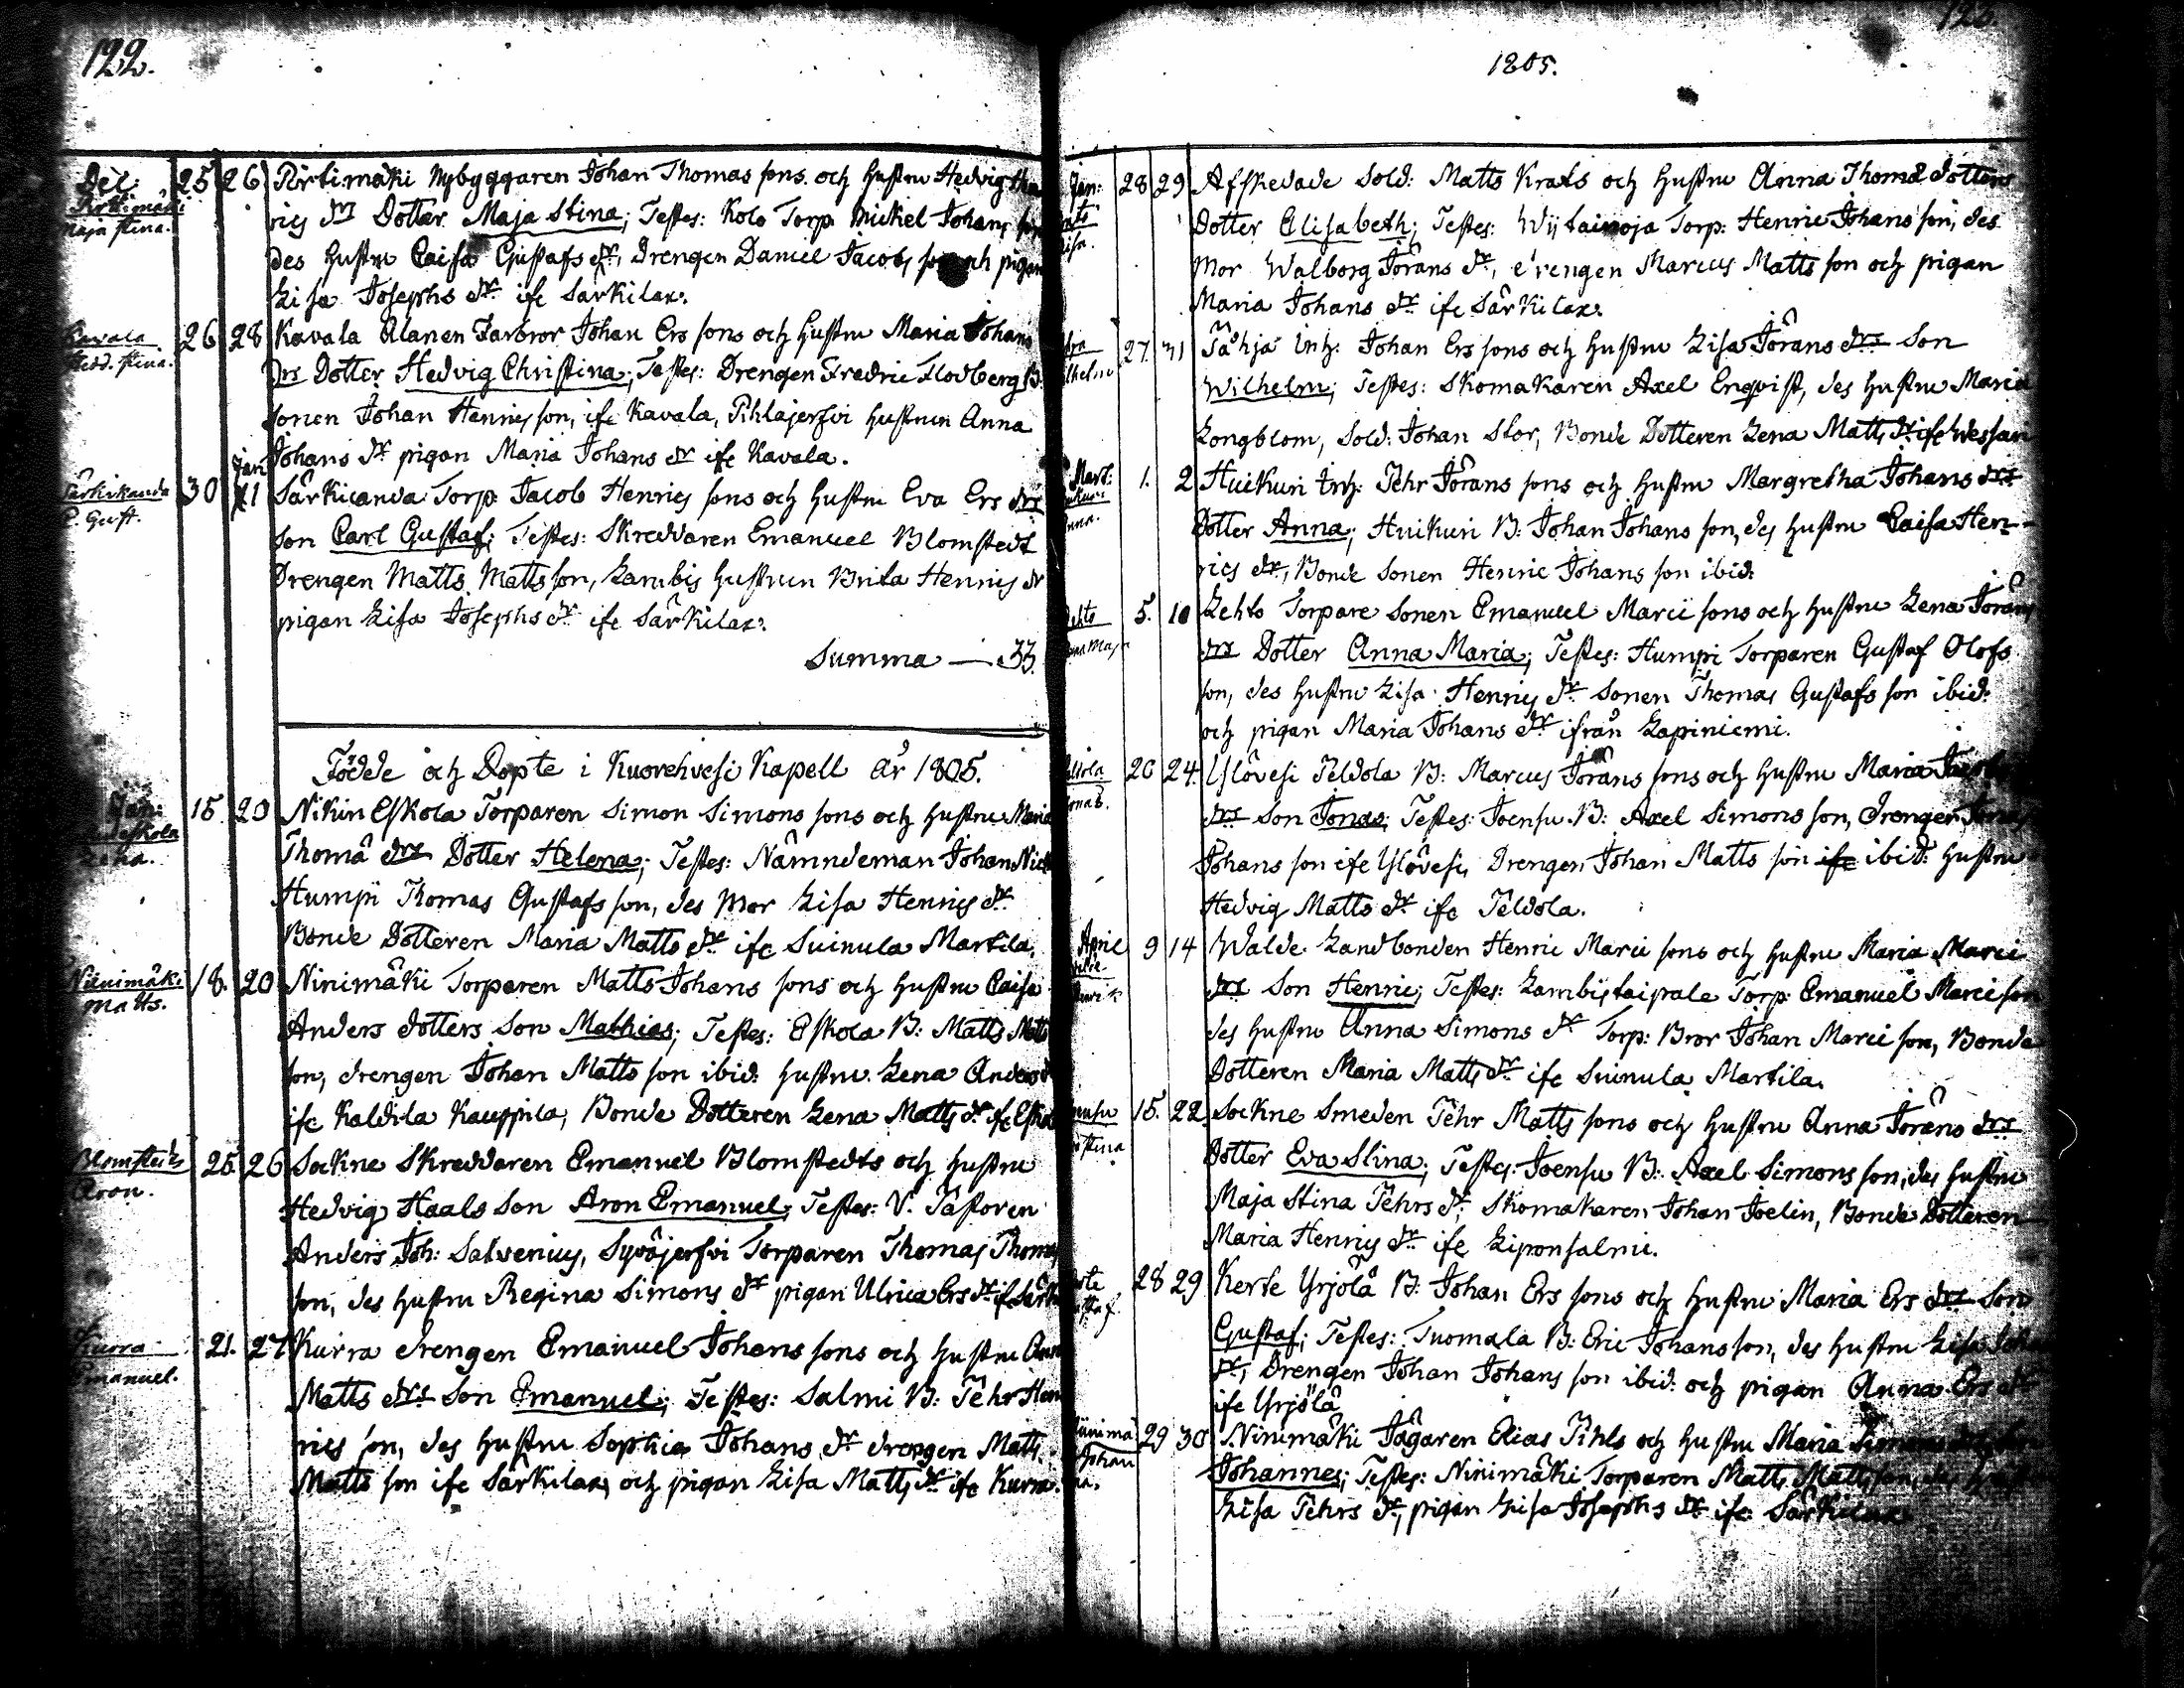 122.
Dec: 25 26 Pirtimäki Nybyggaren Johan Thomas sons och hustru Hedvig
Pirttimäki
Maja Stina.
rics drs Dotter Maja Stina; Testes: Kolo Torp. Mickel Johans son
des hustru Caisa Gustafs dr, Drengen Daniel Jacobs son och pigan
Lisa Josephs dr ifr Särkilax.
Kavala 26 28 Kavala Alanen Farbror Johan Ers sons och hustru Maria Johans
Hedd. Stina.
drs Dotter Hedvig Christina; Testes: Drengen Fredric Flodberg B.
sonen Johan Henrics son, ifr Kavala, Pihlajerfvi hustrun Anna
Johans dr pigan Maria Johans dr ifr Kavala.
Jan
Särkikanda 30 1 Särkicanda Torp. Jacob Henrics sons och hustru Eva Ers drs
C. Gust.
son Carl Gustaf; Testes: Skreddaren Emanuel Blomstedt
Drengen Matts Matts son, Lambis hustrun Brita Henrics dr
pigan Lisa Josephs dr ifr Särkilax.
Summa — 33.
Födde och Döpte i Kuorehvesi Kapell år 1805.
Jan: 15 20 Nikun Eskola Torparen Simon Simons sons och hustru Maria
Eskola
Lena.
Thomä drs Dotter Helena; Testes: Nämndeman Johan
Humpi Thomas Gustafs son, des Mor Lisa Henrics dr
Bonde Dotteren Maria Matts dr ifr Suinula Martila.
Niinimäki 18. 20 Ninimäki Torparen Matts Johans sons och hustru Caisa
Matts.
Anders dotters Son Mathias; Testes: Eskola B: Matts Matts
son, drengen Johan Matts son ibid: hustru Lena Anders d
ifr Kaldila Kauppila, Bonde Dotteren Lena Matts dr ifr
Blomstedts 25 26 Sockne Skreddaren Emanuel Blomstedts och hustru
Aron.
Hedvig Haals Son Aron Emanuel; Testes: V. Pastoren
Anders Joh: Salvenius, Syväjerfvi Torparen Thomas Thomas
son, des hustru Regina Simons dr pigan Ulrica Ers dr
Kurra 21. 27 Kurra drengen Emanuel Johans sons och hustru
Emanuel.
Matts drs Son Emanuel; Testes: Salmi B: Pehr Hen
rics son, des hustru Sophia Johans dr drengen Matts
Matts son ifr Särkilax och pigan Lisa Matts dr ifr Kurra.
1805.
Jan: 28 29 Afskedade Sold: Matts Krats och hustru Anna Thomä dotters
Dotter Elisabeth; Testes: Wijtainoja Torp: Henric Johans son, des
Mor Walborg Jörans dr, drengen Marcus Matts son och pigan
Maria Johans dr ifr Särkilax.
27 31 Pähjä Inh: Johan Ers sons och hustru Lisa Jörans drs Son
Wilhelm; Testes: Skomakaren Axel Enqvist, des hustru Maria
Longblom, Sold: Johan Stor, Bonde Dotteren Lena Matts dr ifr
Mart: 1. 2 Huikuri Inh: Pehr Jörans sons och hustru Margretha Johans drs
Anna.
Dotter Anna; Huikuri B: Johan Johans son, des hustru Caisa Hen-
rics dr, Bonde Sonen Henric Johans son ibid:
5. 10 Lehto Torpare Sonen Emanuel Marci sons och hustru Lena Jörans
drs Dotter Anna Maria; Testes: Humpi Torparen Gustaf Olofs
son, des hustru Lisa Henrics dr Sonen Thomas Gustafs son ibid:
och pigan Maria Johans dr ifrån Lapiniemi.
20 24. Ylövesi Peldola B: Marcus Jörans sons och hustru Maria
Jonas.
drs Son Jonas; Testes: Joensu B: Axel Simons son, Drengen
Johans son ifr Ylövesi, Drengen Johan Matts son ifr ibid: hustru
Hedvig Matts dr ifr Peldola.
April 9 14 Walde Landbonden Henric Marci sons och hustru Maria Marci
Henrik
drs Son Henric; Testes: Lambijtaipale Torp: Emanuel Marci son
des hustru Anna Simons dr Torp: Bror Johan Marci son, Bonde
Dotteren Maria Matts dr ifr Suinula Martila.
15. 22 Sockne Smeden Pehr Matts sons och hustru Anna Jörans drs
Dotter Eva Stina; Testes: Joensu B: Axel Simons son, des hustru
Maja Stina Pehrs dr Skomakaren Johan Joelin, Bonde Dotteren
Maria Henrics dr ifr Liponsalmi.
28 29 Kerte Yrjölä B: Johan Ers sons och hustru Maria Ers drs Son
Gustaf; Testes: Tuomala B: Eric Johans son, des hustru Lisa
dr, Drengen Johan Johans son ibid: och pigan Anna Ers dr
ifr Yrjölä
29 30 Ninimäki Jägaren Elias Pihls och hustru Maria Simons
Johan
Johannes; Testes: Ninimäki Torparen Matts Matts son, des
Lisa Pehrs dr, pigan Lisa Josephs dr ifr Särkilax